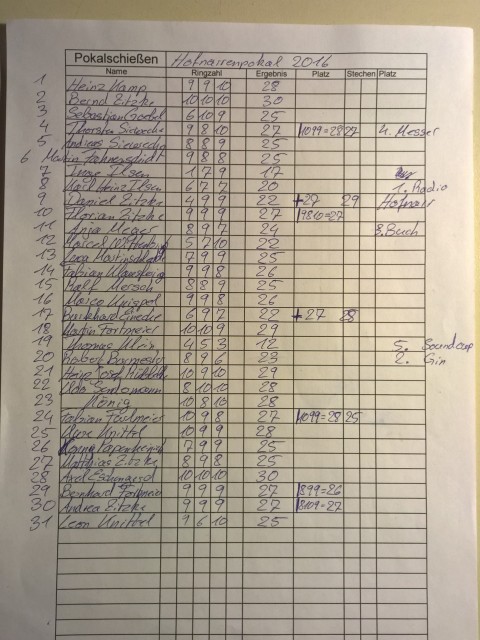 Pokalschießen Hofnarrenpokal 2016
Name Ringzahl Ergebnis Platz Stechen Platz
1 Heinz Kamp 9 9 10 28
2 Bernd Zitzke 10 10 10 30
3 Sebastian Goebel 6 10 9 25
4 Thorsten 9 8 10 27 10 9 9 = 28 27 4. Messer
5 Andreas 8 8 9 25
6 Martin 9 8 8 25
7 Ilsen 1 7 9 17
8 Karl Heinz Ilsen 6 7 7 20 1. Radio
9 Daniel Zitzke 4 9 9 22 +27 29 Hofnarr
10 Florian Zitzke 9 9 9 27 9 8 10 = 27
11 Anja Meger 8 9 7 24 3. Buch
12 Marcel 5 7 10 22
13 7 9 9 25
14 Fabian 9 9 8 26
15 Ralf Mersch 8 8 9 25
16 Marco 9 9 8 26
17 Burkhard 6 9 7 22 +27 28
18 Martin Fortmeier 10 10 9 29
19 Thomas Klein 4 5 3 12 5. Soundcup
20 Robert 8 9 6 23 2. Gin
21 Heinz Josef 10 9 10 29
22 Udo 8 10 10 28
23 König 10 8 10 28
24 Fabian 10 9 8 27 10 9 9 = 28 25
25 Knittel 10 9 9 28
26 7 9 9 25
27 Matthias Zitzke 8 9 8 25
28 Axel 10 10 10 30
29 Bernhard Fortmeier 9 9 9 27 8 9 9 = 26
30 Andrea Zitzke 9 9 9 27 8 10 9 = 27
31 Leon Knittel 9 6 10 25